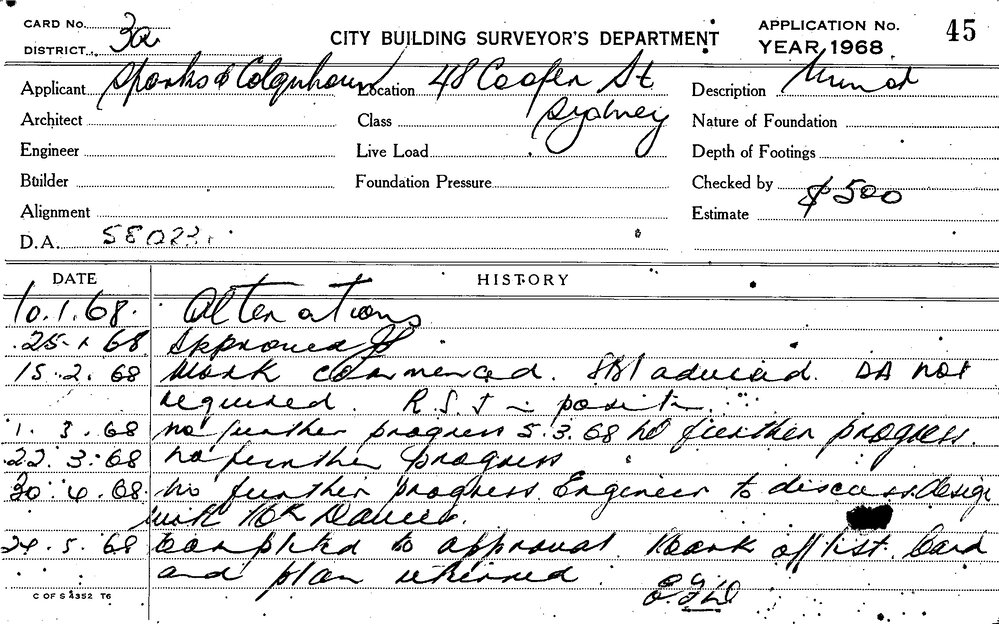 CARD No. 3a
DISTRICT
CITY BUILDING SURVEYOR'S DEPARTMENT
APPLICATION No. 45
YEAR 1968
Applicant Sparks & Colquhoun Location 48 Cooper St Description
Architect Class Sydney Nature of Foundation
Engineer Live Load Depth of Footings
Builder Foundation Pressure Checked by
Alignment Estimate $500
D.A. 58023
DATE HISTORY
10.1.68. Alterations
25.1.68 Approved
15.2.68 Work commenced. advised. DA not
required. R.S.J in position.
1.3.68 no further progress 5.3.68 no further progress.
22.3.68 no further progress
30.4.68. no further progress. Engineer to discuss design
with Mr
24.5.68 Completed to approval. Mark off list. Card
and plan returned.
C OF S 4352 T6